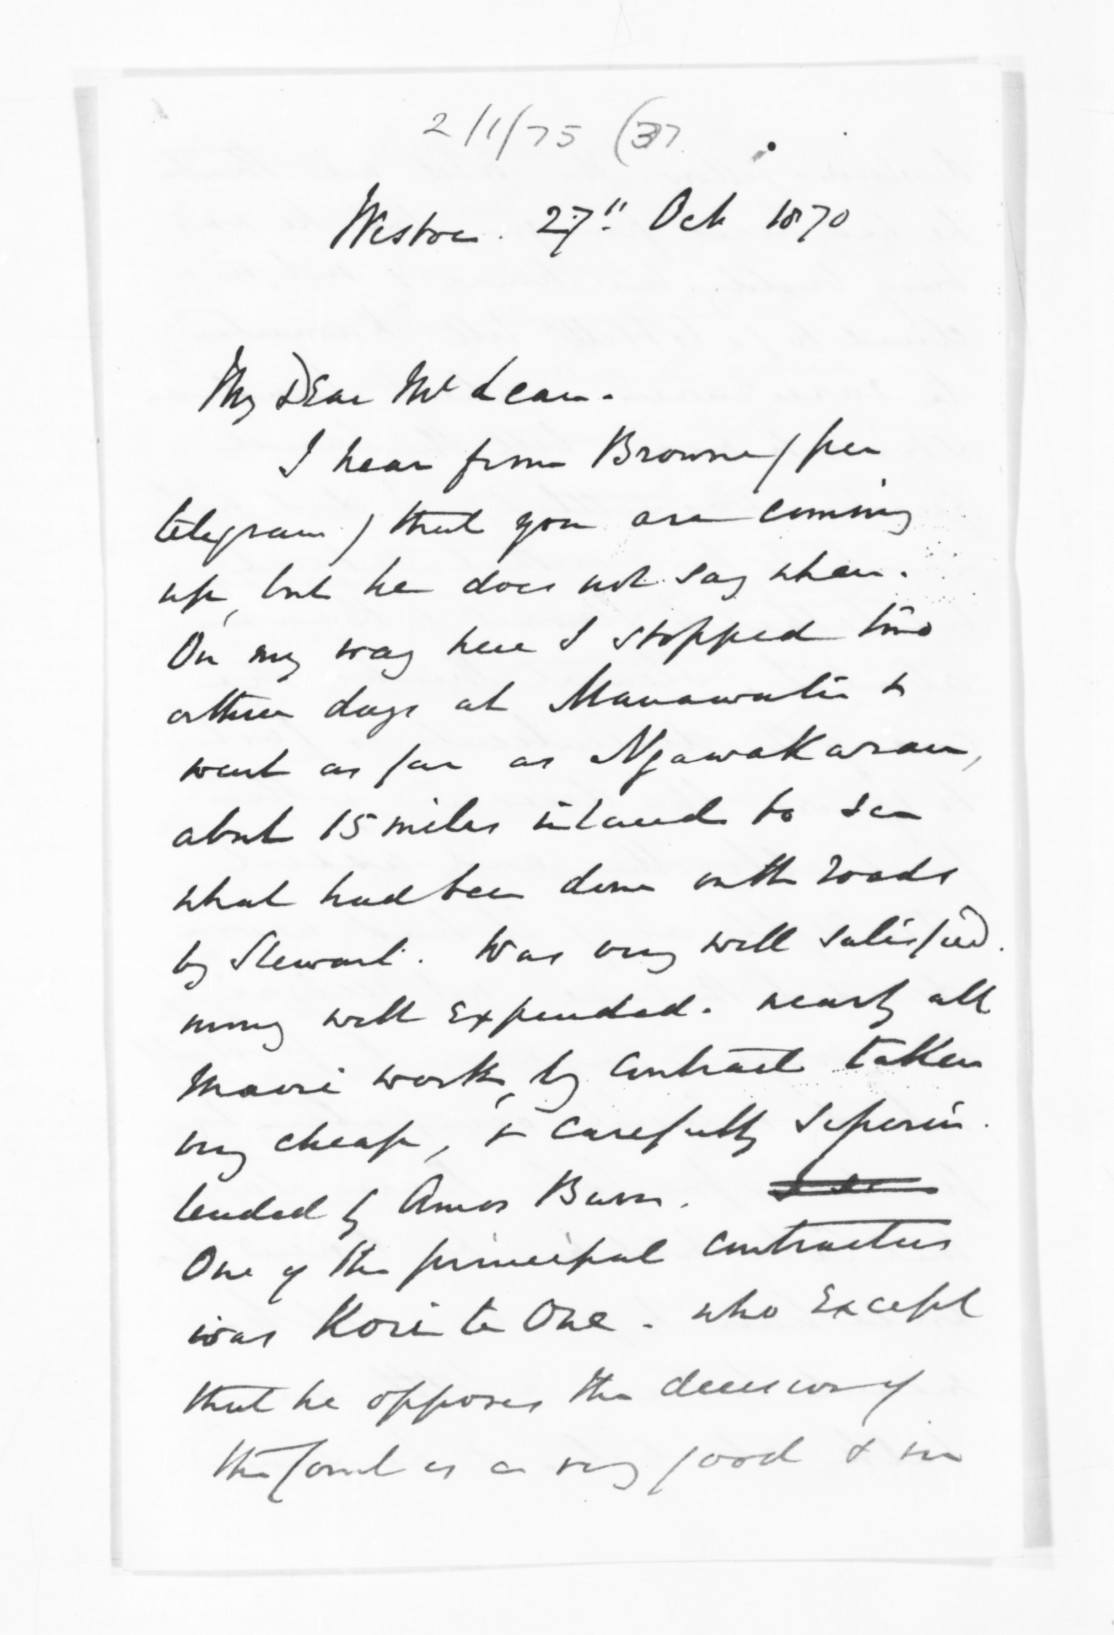 2/1/75 (37
Westoe. 27th Oct 1870
My Dear McLean.
I hear from Browne (per
telegram) that you are coming
up, but he does not say when.
On my way here I stopped two
or three days at Manawatu &
went as far as Ngawakarau,
about 15 miles inland to see
what had been done on the roads
by Stewart. Was very well satisfied.
money well expended. nearly all
Maori work, by contract taken
very cheap, & carefully superin.
tended by Amos Burr.
One of the principal contractors
was Kerei te One. who except
that he opposes the decision of
the Court is a very good &